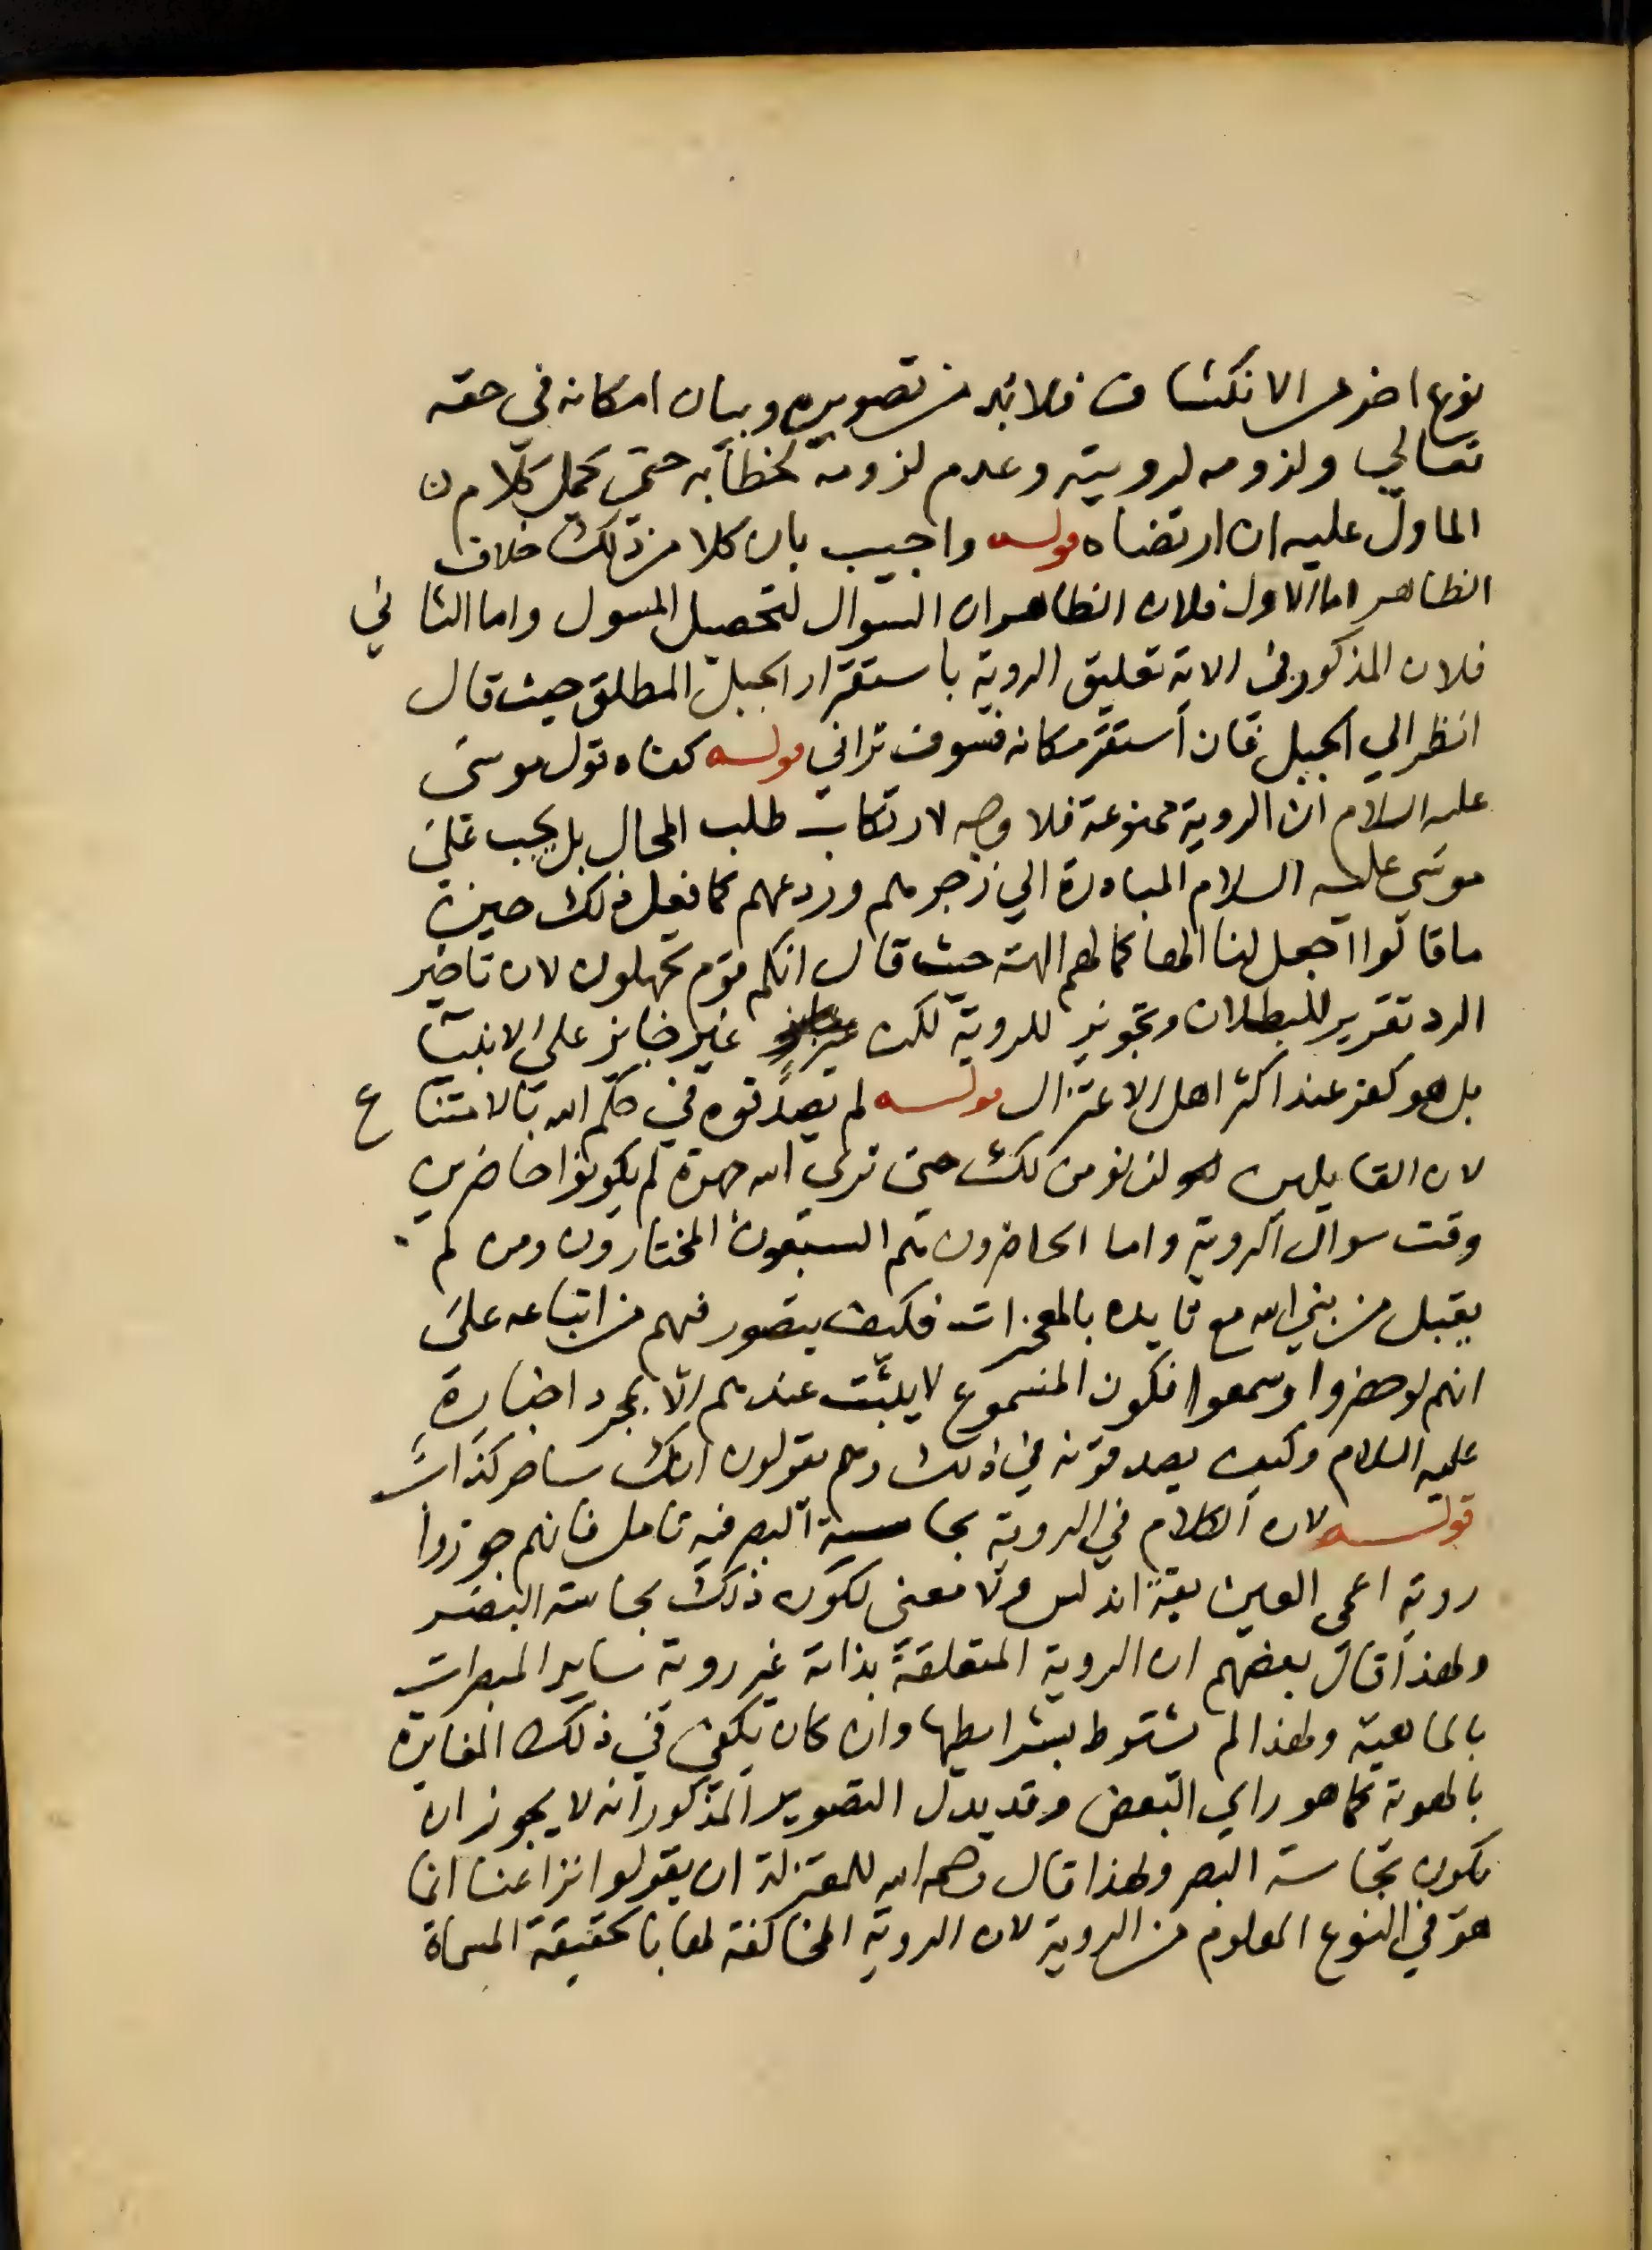 نوع اخر من الانكشاف فلابد من تصويره وبيان امكانه في حقه
تعالي ولزومه لرويته وعدم لزومه لخطابه حتي يحمل كلام
الماول عليه ان ارتضاه قوله واجيب بان كلا من ذلك خلاف
الظاهر اما الاول فلان الظاهر ان السوال لتحصيل المسول واما الثاني
فلان المذكور في الاية تعليق الروية باستقرار الجبل المطلق حيث قال
انظر الي الجبل فان استقر مكانه فسوف تراني قوله كفاه قول موسى
عليه السلام ان الروية ممنوعة فلا وجه لارتكاب طلب المحال بل يجب على
موسي عليه السلام المبادرة الي زجرهم وردعهم كما فعل ذلك حين
ما قالوا اجعل لنا الها كما لهم الهة حيث قال انكم قوم تجهلون لان تاخير
الرد تقرير للبطلان وتجويز للروية لكن غير جايز على الانبيا
بل هو كفر عند اكثر اهل الاعتزال قوله لم يصدقوه في حكم الله بالامتناع
لان القايلين لن نومن لك حتى نرى الله جهرة لم يكونوا حاضرين
وقت سوال الروية واما الحاضرون هم السبعون المختارون ومن لم
يقبل من نبي الله مع تايده بالمعجزات فكيف يتصور فهم من اتباعه على
انهم لو حضروا وسمعوا فكون المسموع لا يثبت عندهم الا بمجرد اخباره
عليه السلام وكيف يصدقونه في ذلك وهم يقولون انك ساحر كذاب
قوله لان الكلام في الروية بحاسة البصر فيه تامل فانهم جوزوا
روية اعمى العين بقة اندلس ولا معنى لكون ذلك بحاسة البصر
ولهذا قال بعضهم ان الروية المتعلقة بذاته غير روية ساير المبصرات
بالماهية ولهذا لم يشترط بشرايطها وان كان يكفي في ذلك المغايرة
بالهوية كما هو راي البعض وقد يدل التصوير المذكور انه لا يجوز ان
يكون بحاسة البصر ولهذا قال رحمه الله للمعتزلة ان يقولوا نزاعنا انما
هو في النوع المعلوم من الروية لان الروية المخالفة لها بالحقيقة المسماة